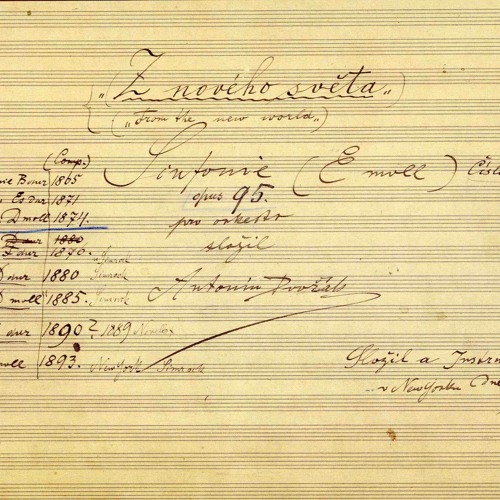 „Z nového světa„
(„From the new world„)
Sinfonie (E moll)
opus 95.
pro orkestr
složil
Antonín Dvořák
(Comp.)
B dur 1865
Es dur 1871
D moll 1874.
D dur 1880
F dur 1876. Simrock
D dur 1880 Simrock
D moll 1885. Simrock
dur 1890? 1889 Novello
moll 1893. New York Simrock
Složil a
v New Yorku